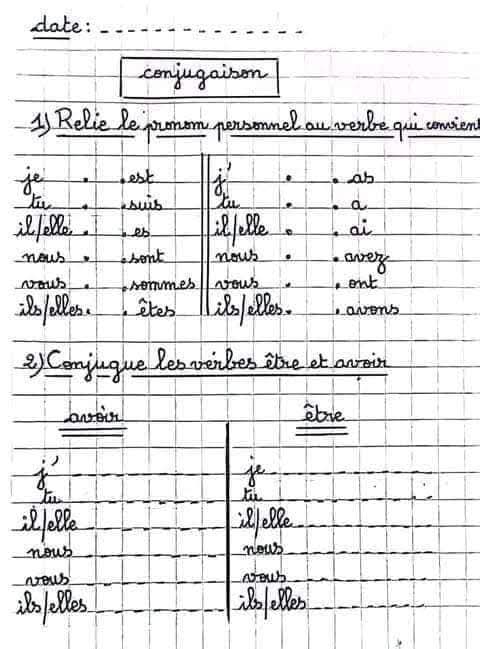 date: - - - - - - - - - - - - - -
conjugaison
1) Relie le pronom personnel au verbe qui convient
je . . est j' . . as
tu . . suis tu . . a
il/elle . . es il/elle . . ai
nous . . sont nous . . avez
vous . . sommes vous . . ont
ils/elles . . êtes ils/elles . . avons
2) Conjugue les verbes être et avoir
avoir être
j' _ _ _ _ _ _ je _ _ _ _ _ _
tu _ _ _ _ _ _ tu _ _ _ _ _ _
il/elle _ _ _ _ _ _ il/elle _ _ _ _ _ _
nous _ _ _ _ _ _ nous _ _ _ _ _ _
vous _ _ _ _ _ _ vous _ _ _ _ _ _
ils/elles _ _ _ _ _ _ ils/elles _ _ _ _ _ _